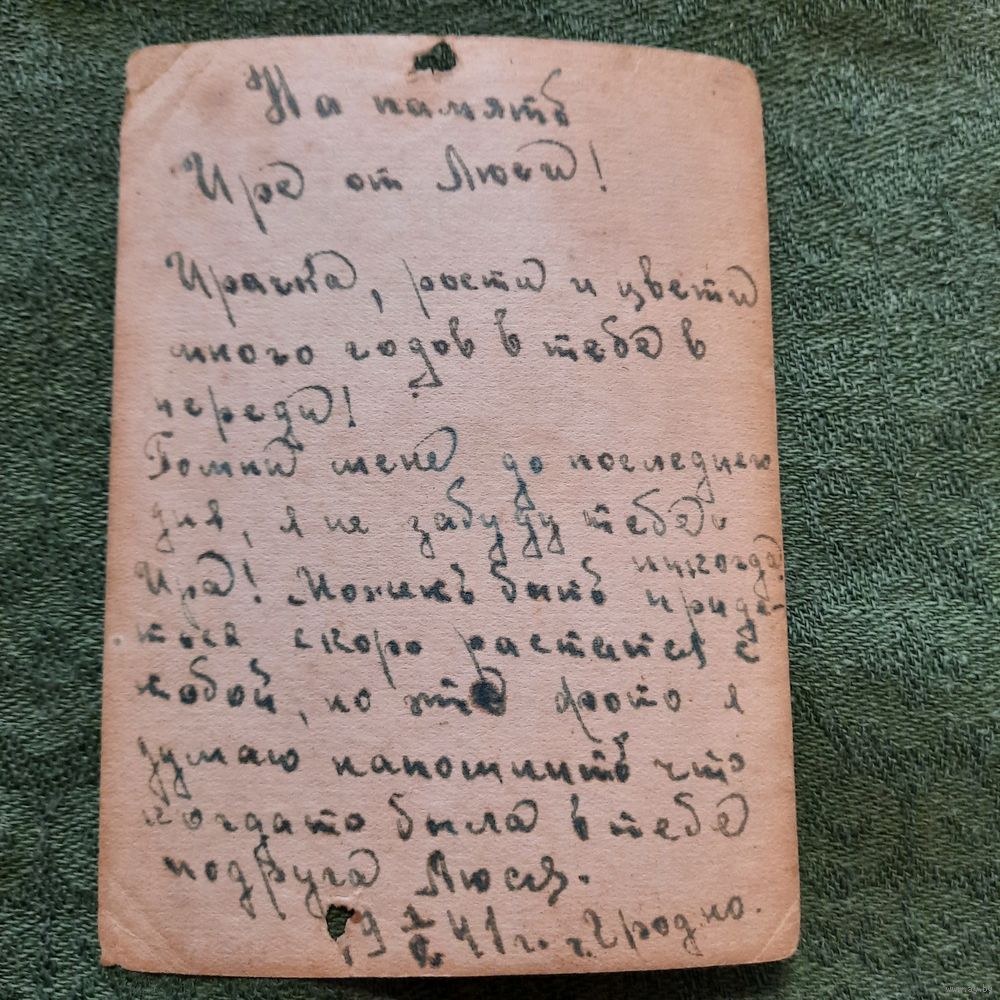 На память
Ире от Люси!
Ирачка, рости и цвети
много годов в тебе в
переди!
Помни мене до последнего
дня, я не забуду тебе и
никогда!
Ира! Может быть приде-
тся скоро растатся с
тобой, но это фото я
думаю напомнить что
когдато была в тебе
подруга Люся.
41 г. г. Гродно.
www.ay.by